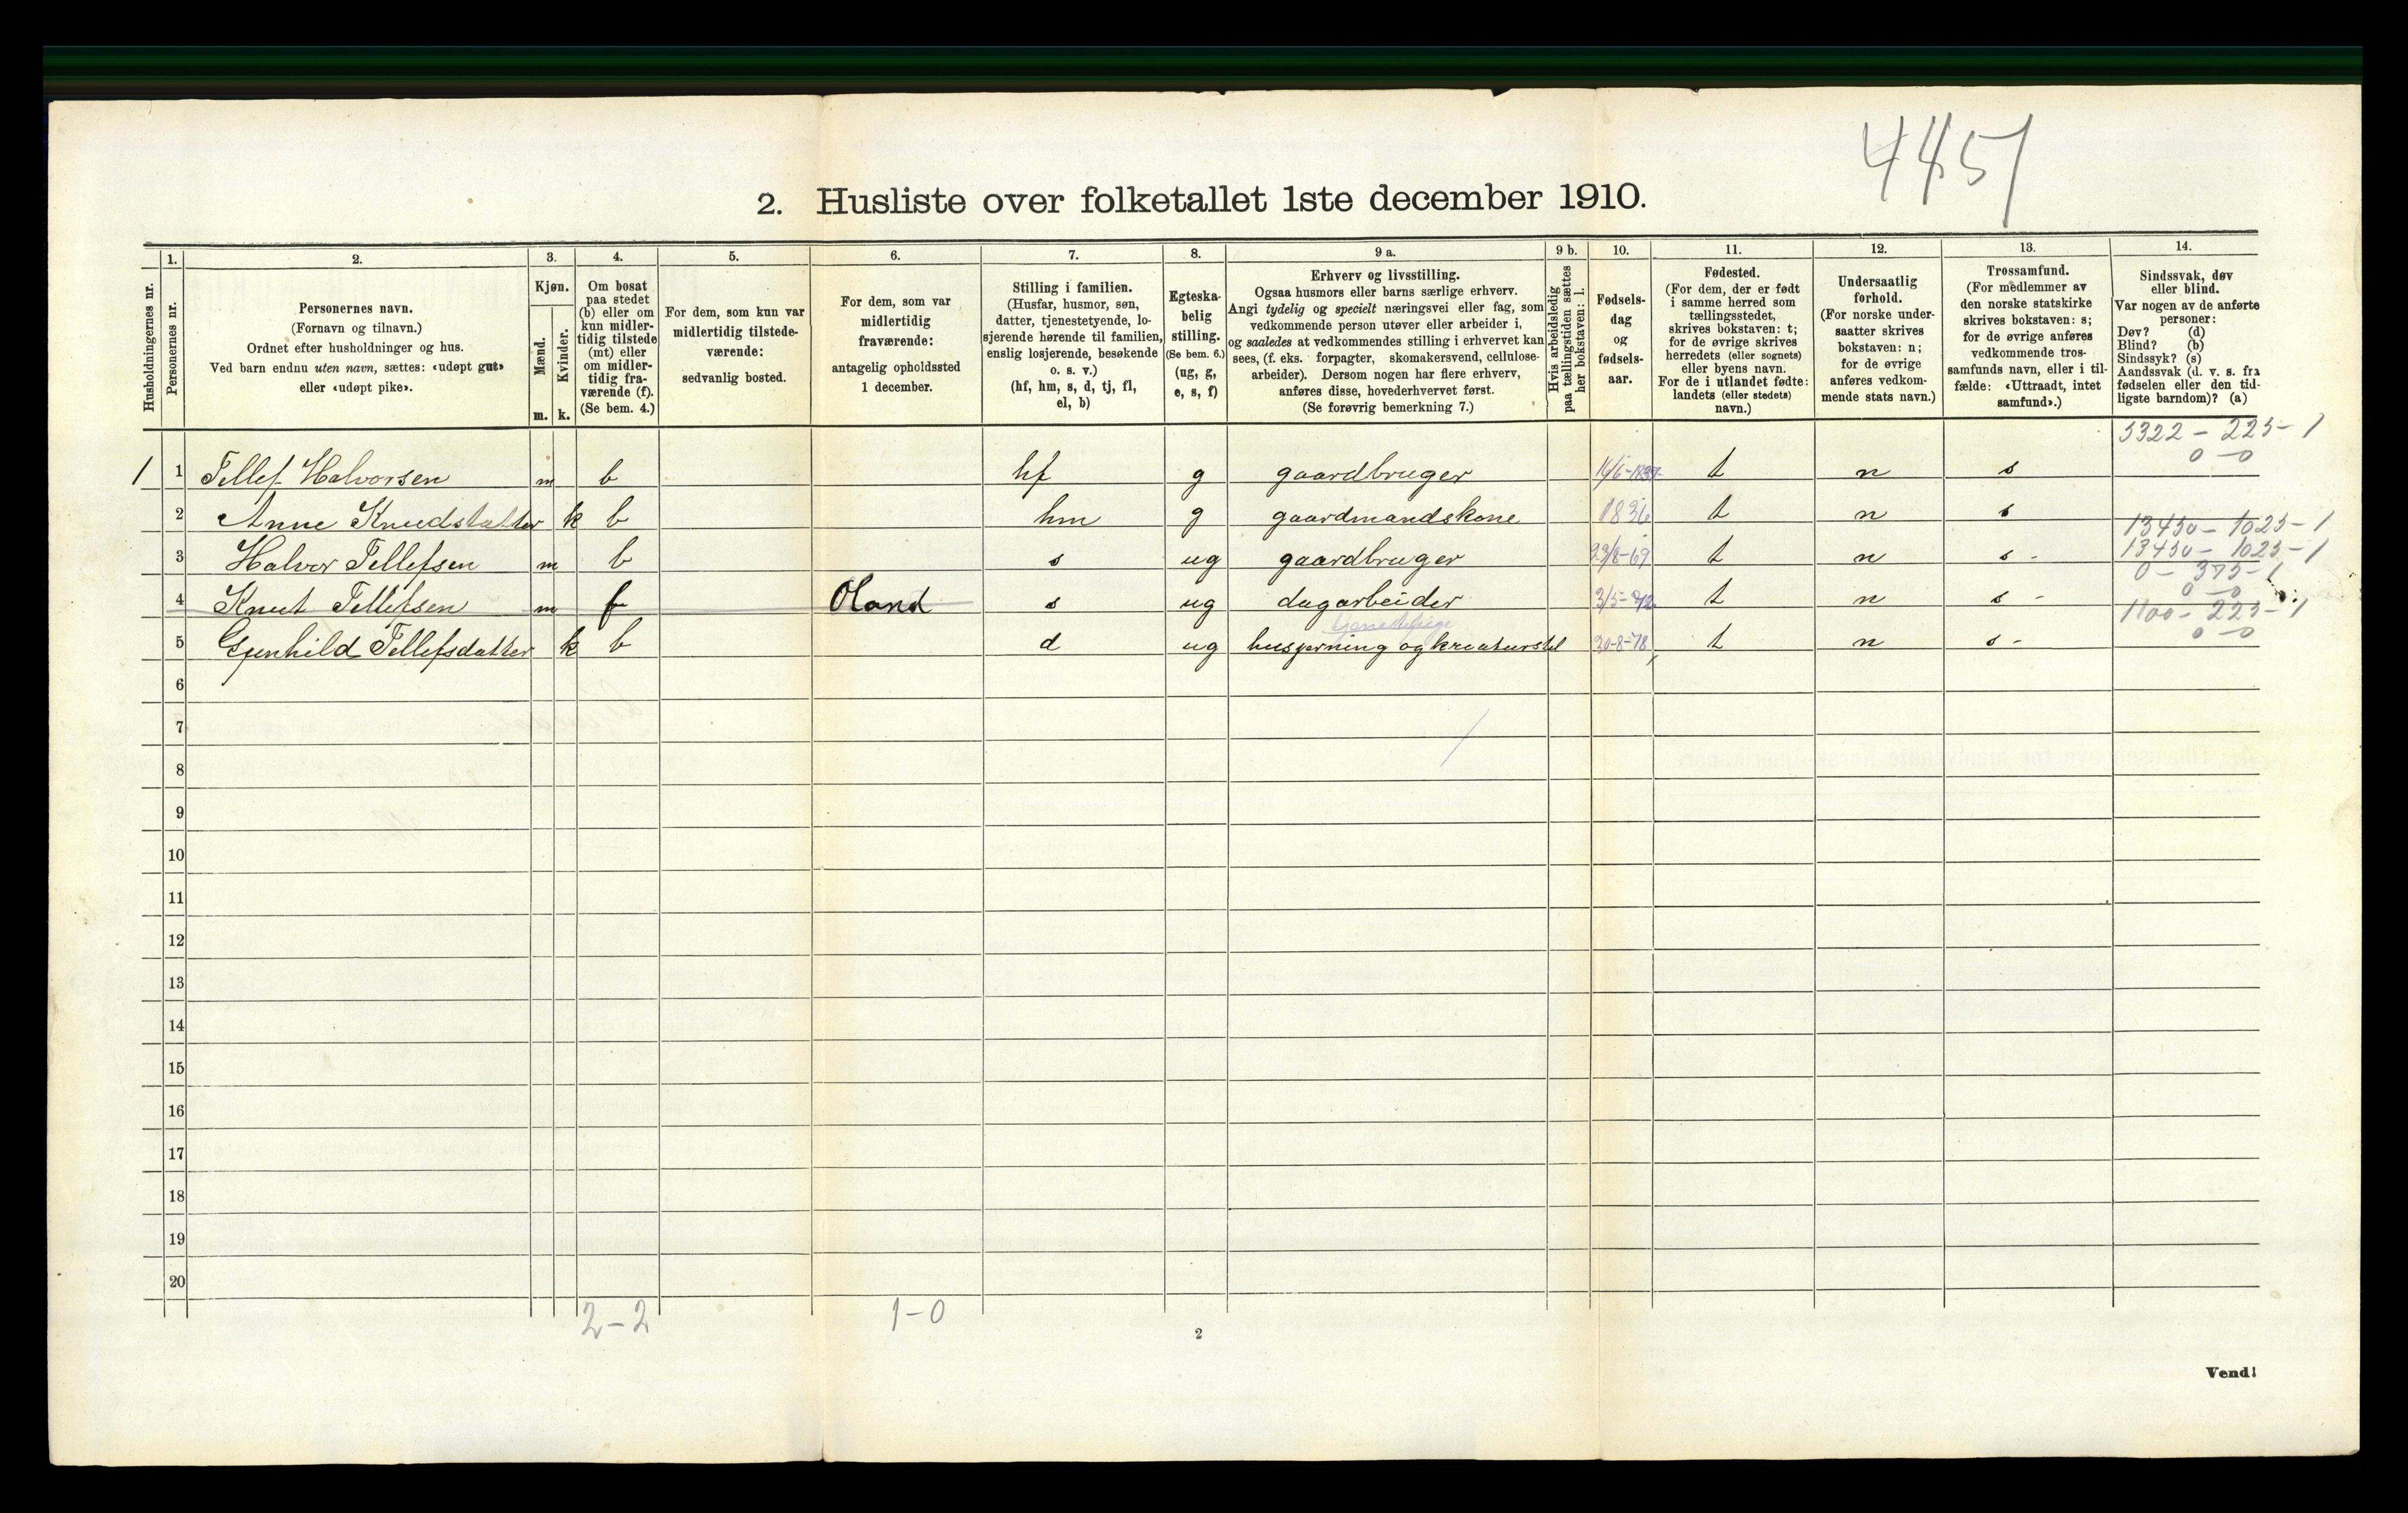 4451
2. Husliste over folketallet 1ste december 1910.
Husholdningernes nr.
1.
Personernes nr.
2.
Personernes navn.
(Fornavn og tilnavn.)
Ordnet efter husholdninger og hus.
Ved barn endnu uten navn, sættes: «udøpt gut»
eller «udøpt pike».
3.
Kjøn.
Mænd.
Kvinder.
m. k.
4.
Om bosat
paa stedet
(b) eller om
kun midler-
tidig tilstede
(mt) eller
om midler-
tidig fra-
værende (f).
(Se bem. 4.)
5.
For dem, som kun var
midlertidig tilstede-
værende:
sedvanlig bosted.
6.
For dem, som var
midlertidig
fraværende:
antagelig opholdssted
1 december.
7.
Stilling i familien.
(Husfar, husmor, søn,
datter, tjenestetyende, lo-
sjerende hørende til familien,
enslig losjerende, besøkende
o. s. v.)
(hf, hm, s, d, tj, fl,
el, b)
8.
Egteska-
belig
stilling.
(Se bem. 6.)
(ug, g,
e, s, f)
9 a.
Erhverv og livsstilling.
Ogsaa husmors eller barns særlige erhverv.
Angi tydelig og specielt næringsvei eller fag, som
vedkommende person utøver eller arbeider i,
og saaledes at vedkommendes stilling i erhvervet kan
sees, (f. eks. forpagter, skomakersvend, cellulose-
arbeider). Dersom nogen har flere erhverv,
anføres disse, hovederhvervet først.
(Se forøvrig bemerkning 7.)
9 b.
Hvis arbeidsledig
paa tællingstiden sættes
her bokstaven: l.
10.
Fødsels-
dag
og
fødsels-
aar.
11.
Fødested.
(For dem, der er født
i samme herred som
tællingsstedet,
skrives bokstaven: t;
for de øvrige skrives
herredets (eller sognets)
eller byens navn.
For de i utlandet fødte:
landets (eller stedets)
navn.)
12.
Undersaatlig
forhold.
(For norske under-
saatter skrives
bokstaven: n;
for de øvrige
anføres vedkom-
mende stats navn.)
13.
Trossamfund.
(For medlemmer av
den norske statskirke
skrives bokstaven: s;
for de øvrige anføres
vedkommende tros-
samfunds navn, eller i til-
fælde: «Uttraadt, intet
samfund».)
14.
Sindssvak, døv
eller blind.
Var nogen av de anførte
personer:
Døv? (d)
Blind? (b)
Sindssyk? (s)
Aandssvak (d. v. s. fra
fødselen eller den tid-
ligste barndom)? (a)
5322 - 225 - 1
0 - 0
1 1 Tellef Halvorsen m b hf g gaardbruger t n s
2 Anne Knudsdatter k b hm g gaardmandskone 1836 t n s
13450 - 1025 - 1
3 Halvor Tellefsen m b s ug gaardbruger 23/8-69 t n s - 13450 - 1025 - 1
0 - 375 - 1
4 Knut Tellefsen m f Oland s ug dagarbeider t n s - 0 - 0
1100 - 225 - 1
5 Gunhild Tellefsdatter k b d ug husgerning og kreaturstel 30-8-78 t n s - 0 - 0
6
7
8
9
10
11
12
13
14
15
16
17
18
19
20
2 - 2 1 - 0
2
Vend!